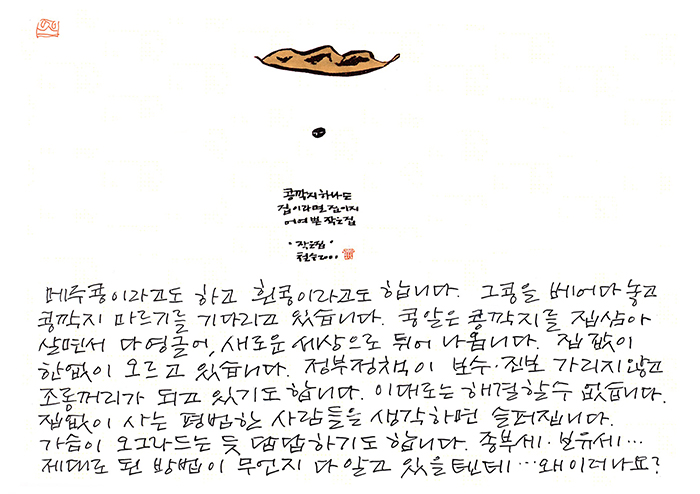 콩깍지 하나도
집이라면 집이지
어여쁜 작은집
"작은집"
철수2001
메주콩이라고도 하고 흰콩이라고도 합니다. 그콩을 베어다 놓고
콩깍지 마르기를 기다리고 있습니다. 콩알은 콩깍지를 집삼아
살면서 다 영글어, 새로운 세상으로 튀어 나옵니다. 집값이
한없이 오르고 있습니다. 정부정책이 보수·진보 가리지않고
조롱꺼리가 되고 있기도 합니다. 이대로는 해결할수 없습니다.
집없이 사는 평범한 사람들을 생각하면 슬퍼집니다.
가슴이 오그라드는 듯 답답하기도 합니다. 종부세·보유세…
제대로 된 방법이 무언지 다 알고 있을텐데…왜이러나요?